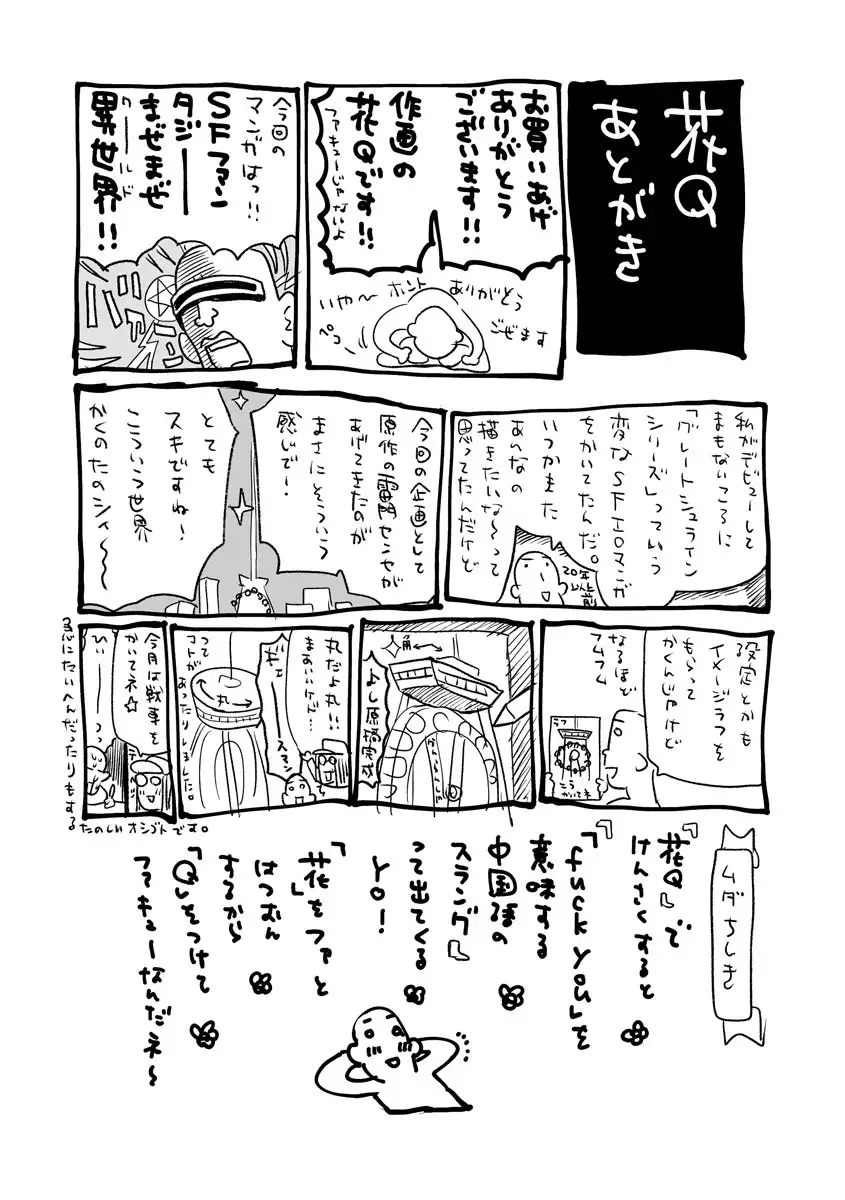 花Q
あとがき
お買いあげ
ありがとう
ございます!!
作画の
花Qです!!
ファキューじゃないよ
いや〜
ホント
ありがとう
ござます
ペコ
今回の
マンガはっ!!
SFファン
タジー
まぜまぜ
異世界!!
ワールド
私がデビューして
まもないころに
「グレートシュライン
シリーズ」っていう
変なSFエロマンガ
をかいてたんだ。
いつかまた
あんなの
描きたいな〜って
思ってたんだけど
20年
以上
前
今回の企画として
原作の雷門センセが
あげてきたのが
まさにそういう
感じで!
とても
スキですね!
こういう世界
かくのたのシィ〜〜
設定とかも
イメージラフを
もらって
かくんじゃけど
なるほど
フムフム
ラフ
こう
かいてネ
角
よし原稿完成
丸だよ丸!!
まあいいけど…
ギェーー
スマン
丸
って
コトが
あったりしました。
今月は戦車を
かいてネ☆
ひぃーーっっ
急にたいへんだったりもする
たのしいオシゴトです。
ムダちしき
『花Q』で
けんさくすると
『「fuck you」を
意味する
中国語の
スラング』
って出てくる
yo!
「花」をファと
はつおん
するから
「Q」をつけて
ファキューなんだネ〜